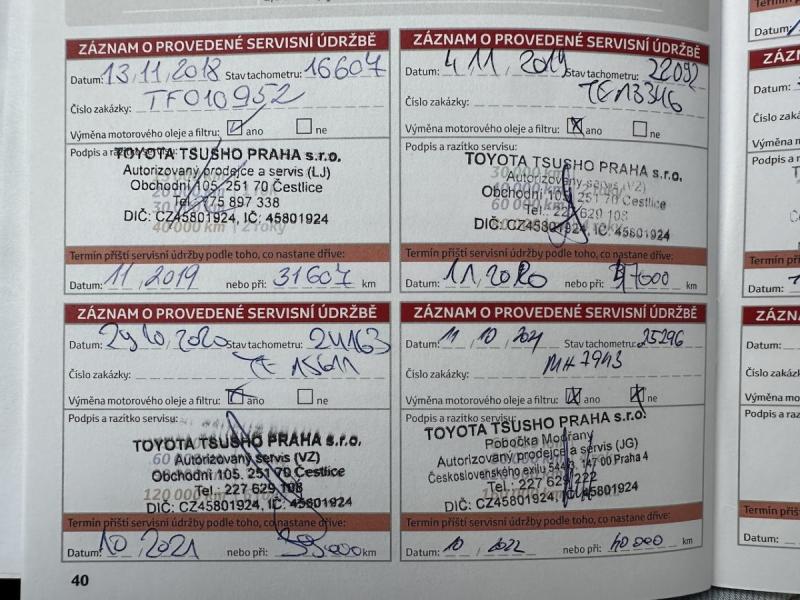 ZÁZNAM O PROVEDENÉ SERVISNÍ ÚDRŽBĚ
Datum: 13, 11, 2018 Stav tachometru: 16607
TF010952
Číslo zakázky:
Výměna motorového oleje a filtru: ano ne
Podpis a razítko servisu:
TOYOTA TSUSHO PRAHA s.r.o.
Autorizovaný prodejce a servis (LJ)
Obchodní 105, 251 70 Čestlice
Tel. 775 897 338
DIČ: CZ45801924, IČ: 45801924
40 000 km 2 roky
Termín příští servisní údržby podle toho, co nastane dříve:
Datum: 11, 2019 nebo při: 31607 km
ZÁZNAM O PROVEDENÉ SERVISNÍ ÚDRŽBĚ
Datum: 4, 11, 2019 Stav tachometru: 22092
TE13346
Číslo zakázky:
Výměna motorového oleje a filtru: ano ne
Podpis a razítko servisu:
TOYOTA TSUSHO PRAHA s.r.o.
Autorizovaný servis (VZ)
Obchodní 105, 251 70 Čestlice
60 000
Tel.: 227 629 108
DIČ: CZ45801924, IČ: 45801924
Termín příští servisní údržby podle toho, co nastane dříve:
Datum: 11, 2020 nebo při: 37000 km
ZÁZNAM O PROVEDENÉ SERVISNÍ ÚDRŽBĚ
Datum: 29, 10, 2020 Stav tachometru: 24163
TE 15611
Číslo zakázky:
Výměna motorového oleje a filtru: ano ne
Podpis a razítko servisu:
TOYOTA TSUSHO PRAHA s.r.o.
60 000
Autorizovaný servis (VZ)
Obchodní 105, 251 70 Čestlice
Tel.: 227 629 108
120 000 km
DIČ: CZ45801924, IČ: 45801924
Termín příští servisní údržby podle toho, co nastane dříve:
Datum: 10, 2021 nebo při: 39000 km
ZÁZNAM O PROVEDENÉ SERVISNÍ ÚDRŽBĚ
Datum: 11, 10, 2021 Stav tachometru: 25296
MH7943
Číslo zakázky:
Výměna motorového oleje a filtru: ano ne
Podpis a razítko servisu:
TOYOTA TSUSHO PRAHA s.r.o.
Pobočka Modřany
Autorizovaný prodejce a servis (JG)
Československého exilu 544/3, 147 00 Praha 4
Tel.: 227 629 222
DIČ: CZ45801924, IČ: 45801924
Termín příští servisní údržby podle toho, co nastane dříve:
Datum: 10, 2022 nebo při: 40000 km
40
Datum:
ZÁZN
Datum:
Číslo zaká
Výměna mo
Podpis a
Termín
Datum:
ZÁZN
Datum:
Číslo zaká
Výměna mo
Podpis a
Termín
Datum: